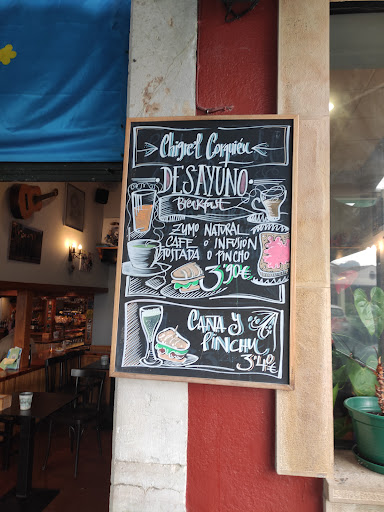 Chigre'l Corquieu
DESAYUNO
Breakfast
ZUMO NATURAL
CAFE O INFUSIÓN
TOSTADA O PINCHO
3'90€
CAÑA Y
PINCHU
3'40€